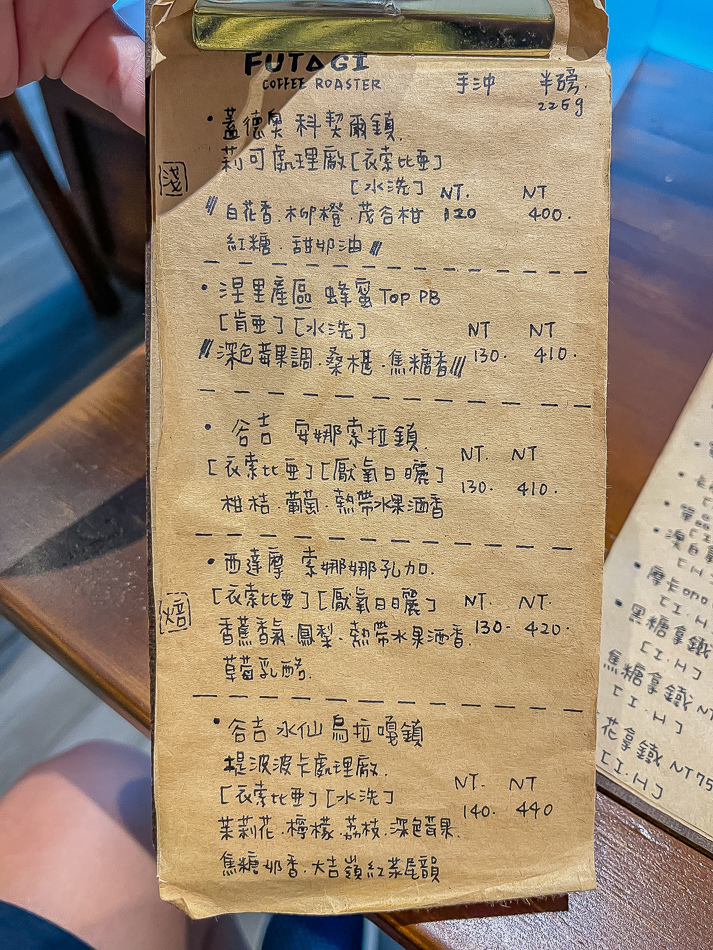 FUTAGI
COFFEE ROASTER
手沖 半磅.
225g
• 蓋德奧 科契爾鎮.
莉可處理廠[衣索比亞]
[水洗] NT. NT
淺
〃白花香.柳橙.茂谷柑 120 400.
紅糖.甜奶油〃
• 涅里產區 蜂蜜 Top PB
[肯亞][水洗] NT NT
〃深色莓果調.桑椹.焦糖香〃 130. 410.
• 谷吉 安娜索拉鎮.
[衣索比亞][厭氧日曬] NT. NT
柑桔.葡萄.熱帶水果酒香 130. 410.
• 西達摩 索娜娜孔加.
[衣索比亞][厭氧日曬] NT. NT.
焙
香蕉香氣.鳳梨.熱帶水果酒香. 130. 420.
草莓乳酪.
• 谷吉 水仙 烏拉嘎鎮
堤波波卡處理廠.
[衣索比亞][水洗] NT. NT
茉莉花.檸檬.荔枝.深色莓果. 140. 440
焦糖奶香.大吉嶺紅茶尾韻
• 摩卡ono
[I.H
• 黑糖拿鐵
[I.H]
焦糖拿鐵 NT
[I.H]
花拿鐵 NT75
[I.H]